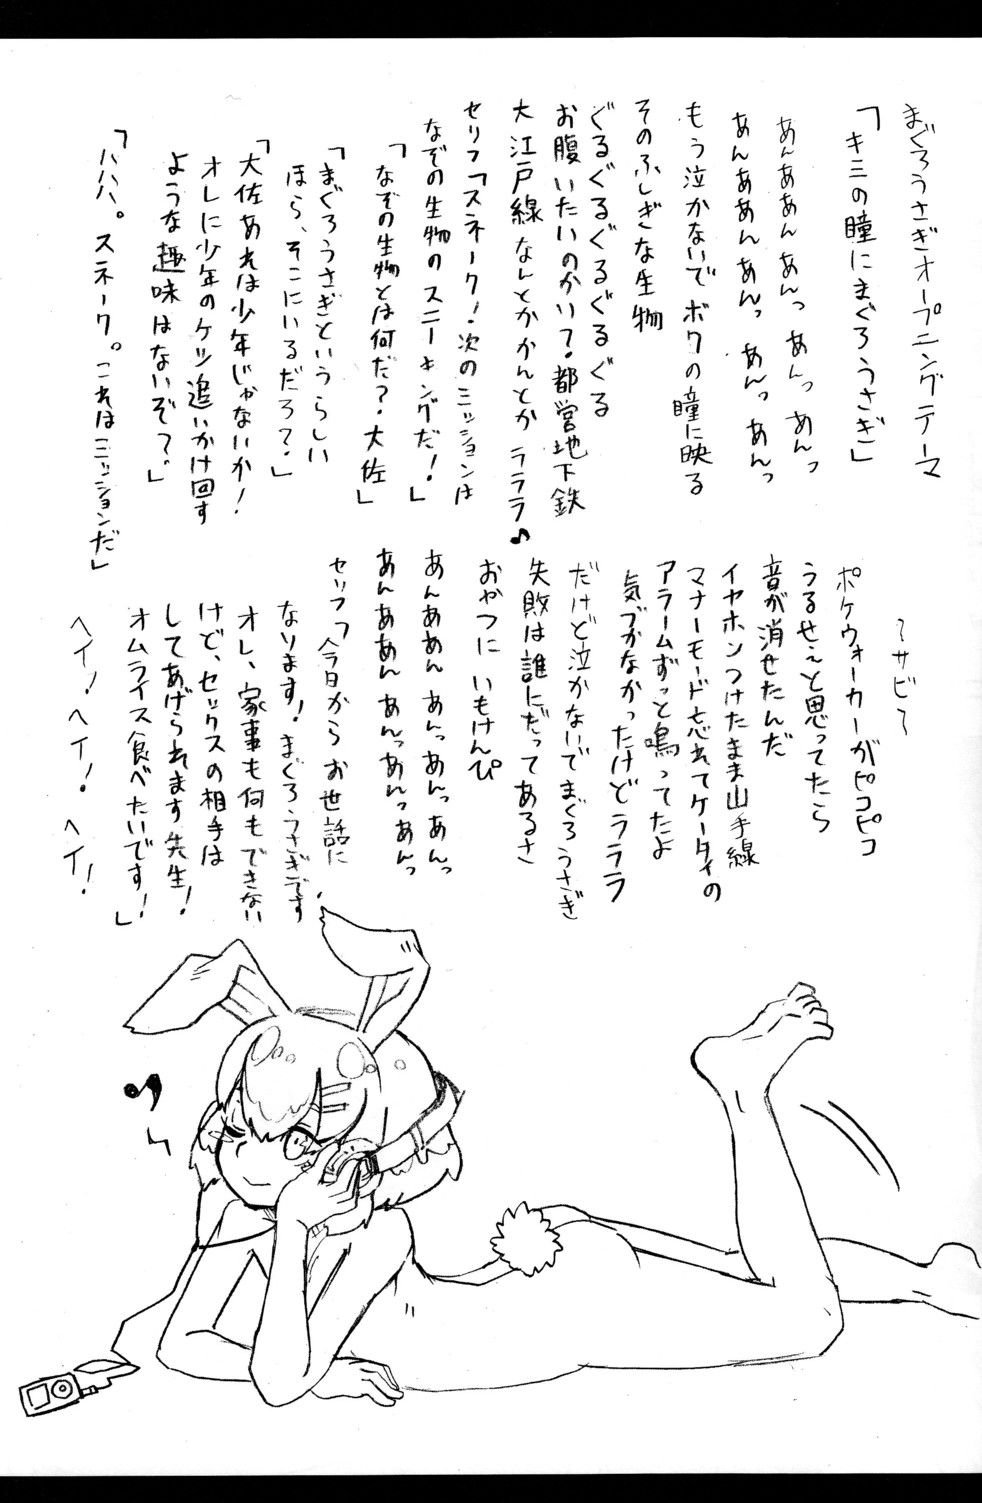 まぐろうさぎオープニングテーマ
「キミの瞳にまぐろうさぎ」
あんああん あんっ あんっ あんっ
あんああんあんっ あんっ あんっ
もう泣かないで ボクの瞳に映る
そのふしぎな生物
ぐるぐるぐるぐるぐるぐる
お腹いたいのかい?都営地下鉄
大江戸線 なんとかかんとか ラララ♪
セリフ「スネーク!次のミッションは
なぞの生物のスニーキングだ!」
「なぞの生物とは何だ?大佐」
「まぐろうさぎというらしい
ほら、そこにいるだろ?」
「大佐あれは少年じゃないか!
オレに少年のケツ追いかけ回す
ような趣味はないぞ?」
「ハハハ。スネーク。これはミッションだ」
～サビ～
ポケウォーカーがピコピコ
うるせぇと思ってたら
音が消せたんだ
イヤホンつけたまま山手線
マナーモード忘れてケータイの
アラームずっと鳴ってたよ
気づかなかったけどラララ
だけど泣かないでまぐろうさぎ
失敗は誰にだってあるさ
おやつに いもけんぴ
あんああん あんっあんっあんっ
あんああん あんっあんっあんっ
セリフ「今日からお世話に
なります!まぐろうさぎです!
オレ、家事も何もできない
けど、セックスの相手は
してあげられます先生!
オムライス食べたいです!」
ヘイ!ヘイ!ヘイ!